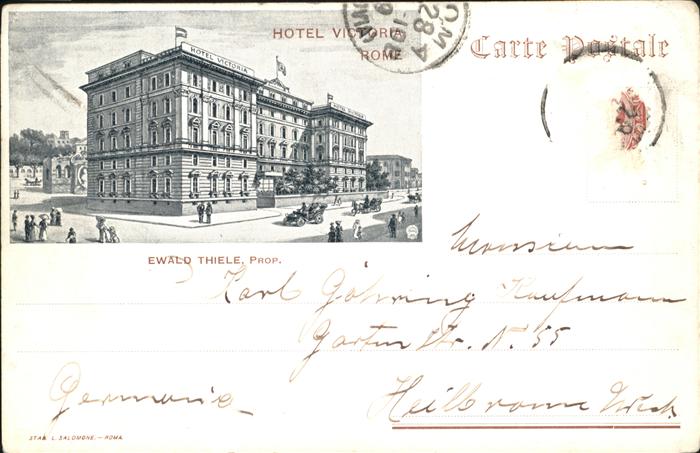 HOTEL VICTORIA
ROME
Carte Postale
HOTEL VICTORIA
EWALD THIELE, PROP.
Monsieur
Karl Göhring Kaufmann
Garten Str. N. 55
Heilbronn
Germania
STAB. L. SALOMONE. — ROMA.